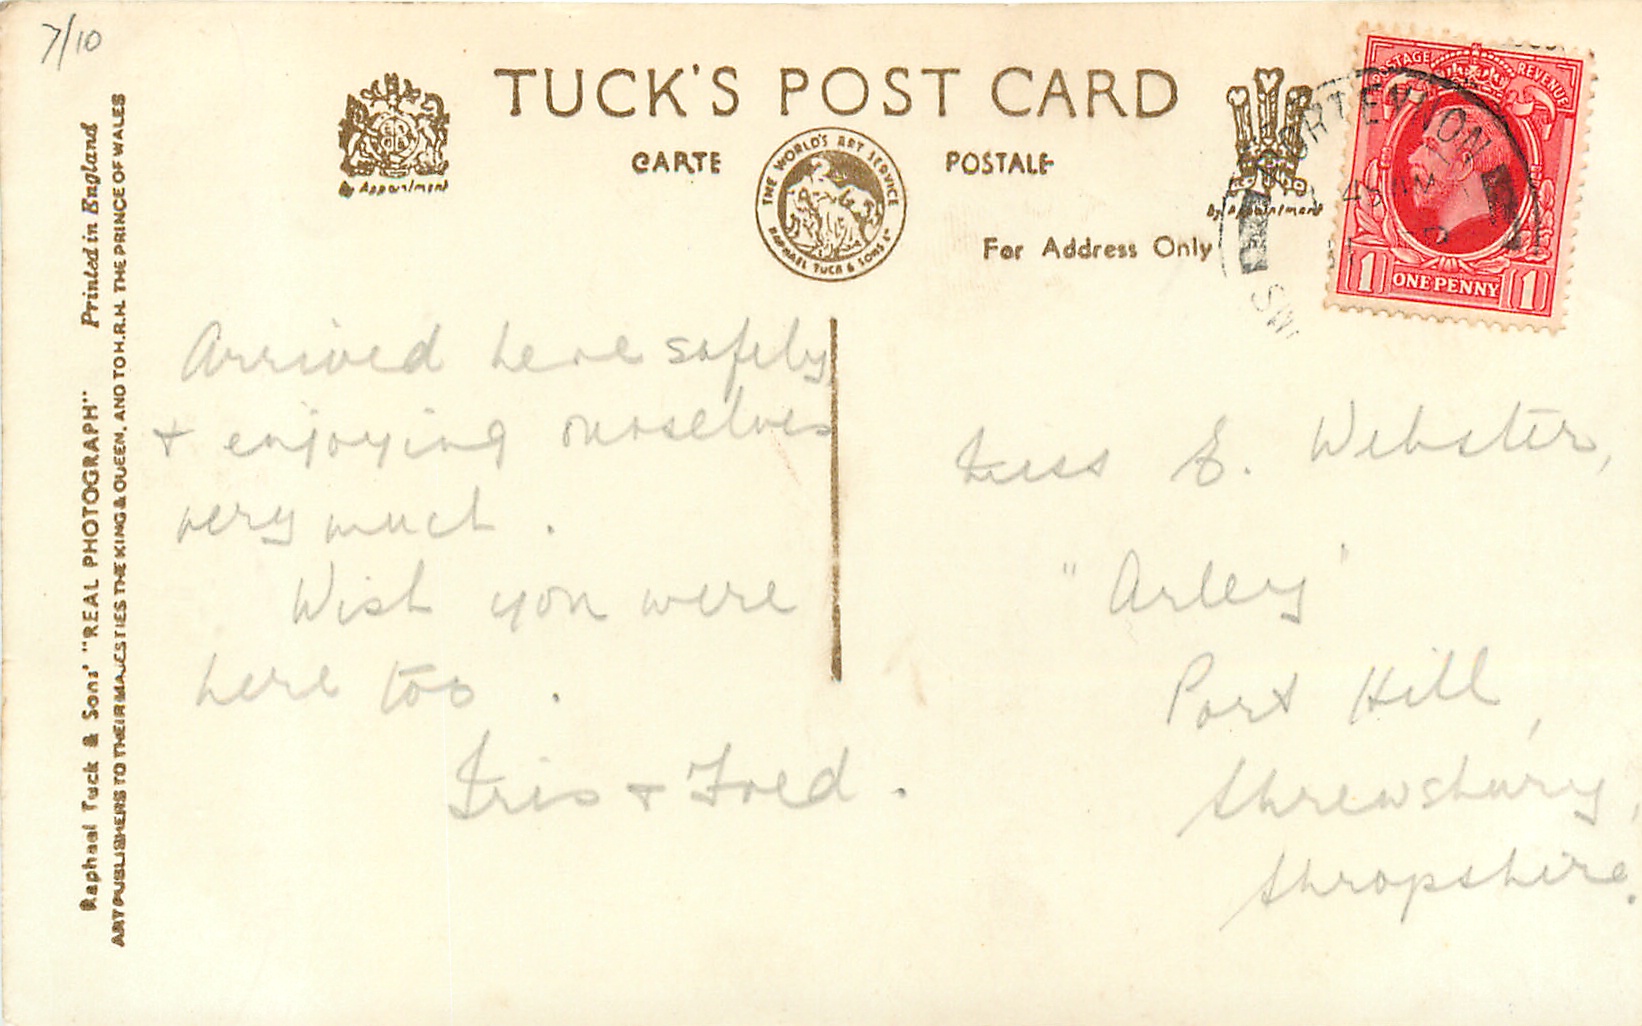 7/10
TUCK'S POST CARD
CARTE POSTALE
By Appointment
By Appointment
THE WORLD'S ART SERVICE
RAPHAEL TUCK & SONS LD
For Address Only
POSTAGE REVENUE
1 ONE PENNY 1
PORTEYNON
SW
Raphael Tuck & Sons' "REAL PHOTOGRAPH" Printed in England
ART PUBLISHERS TO THEIR MAJESTIES THE KING & QUEEN, AND TO H.R.H. THE PRINCE OF WALES
Arrived here safely
+ enjoying ourselves
very much.
Wish you were
here too.
Iris + Fred.
Miss E. Webster,
"Arley"
Port Hill,
Shrewsbury,
Shropshire.